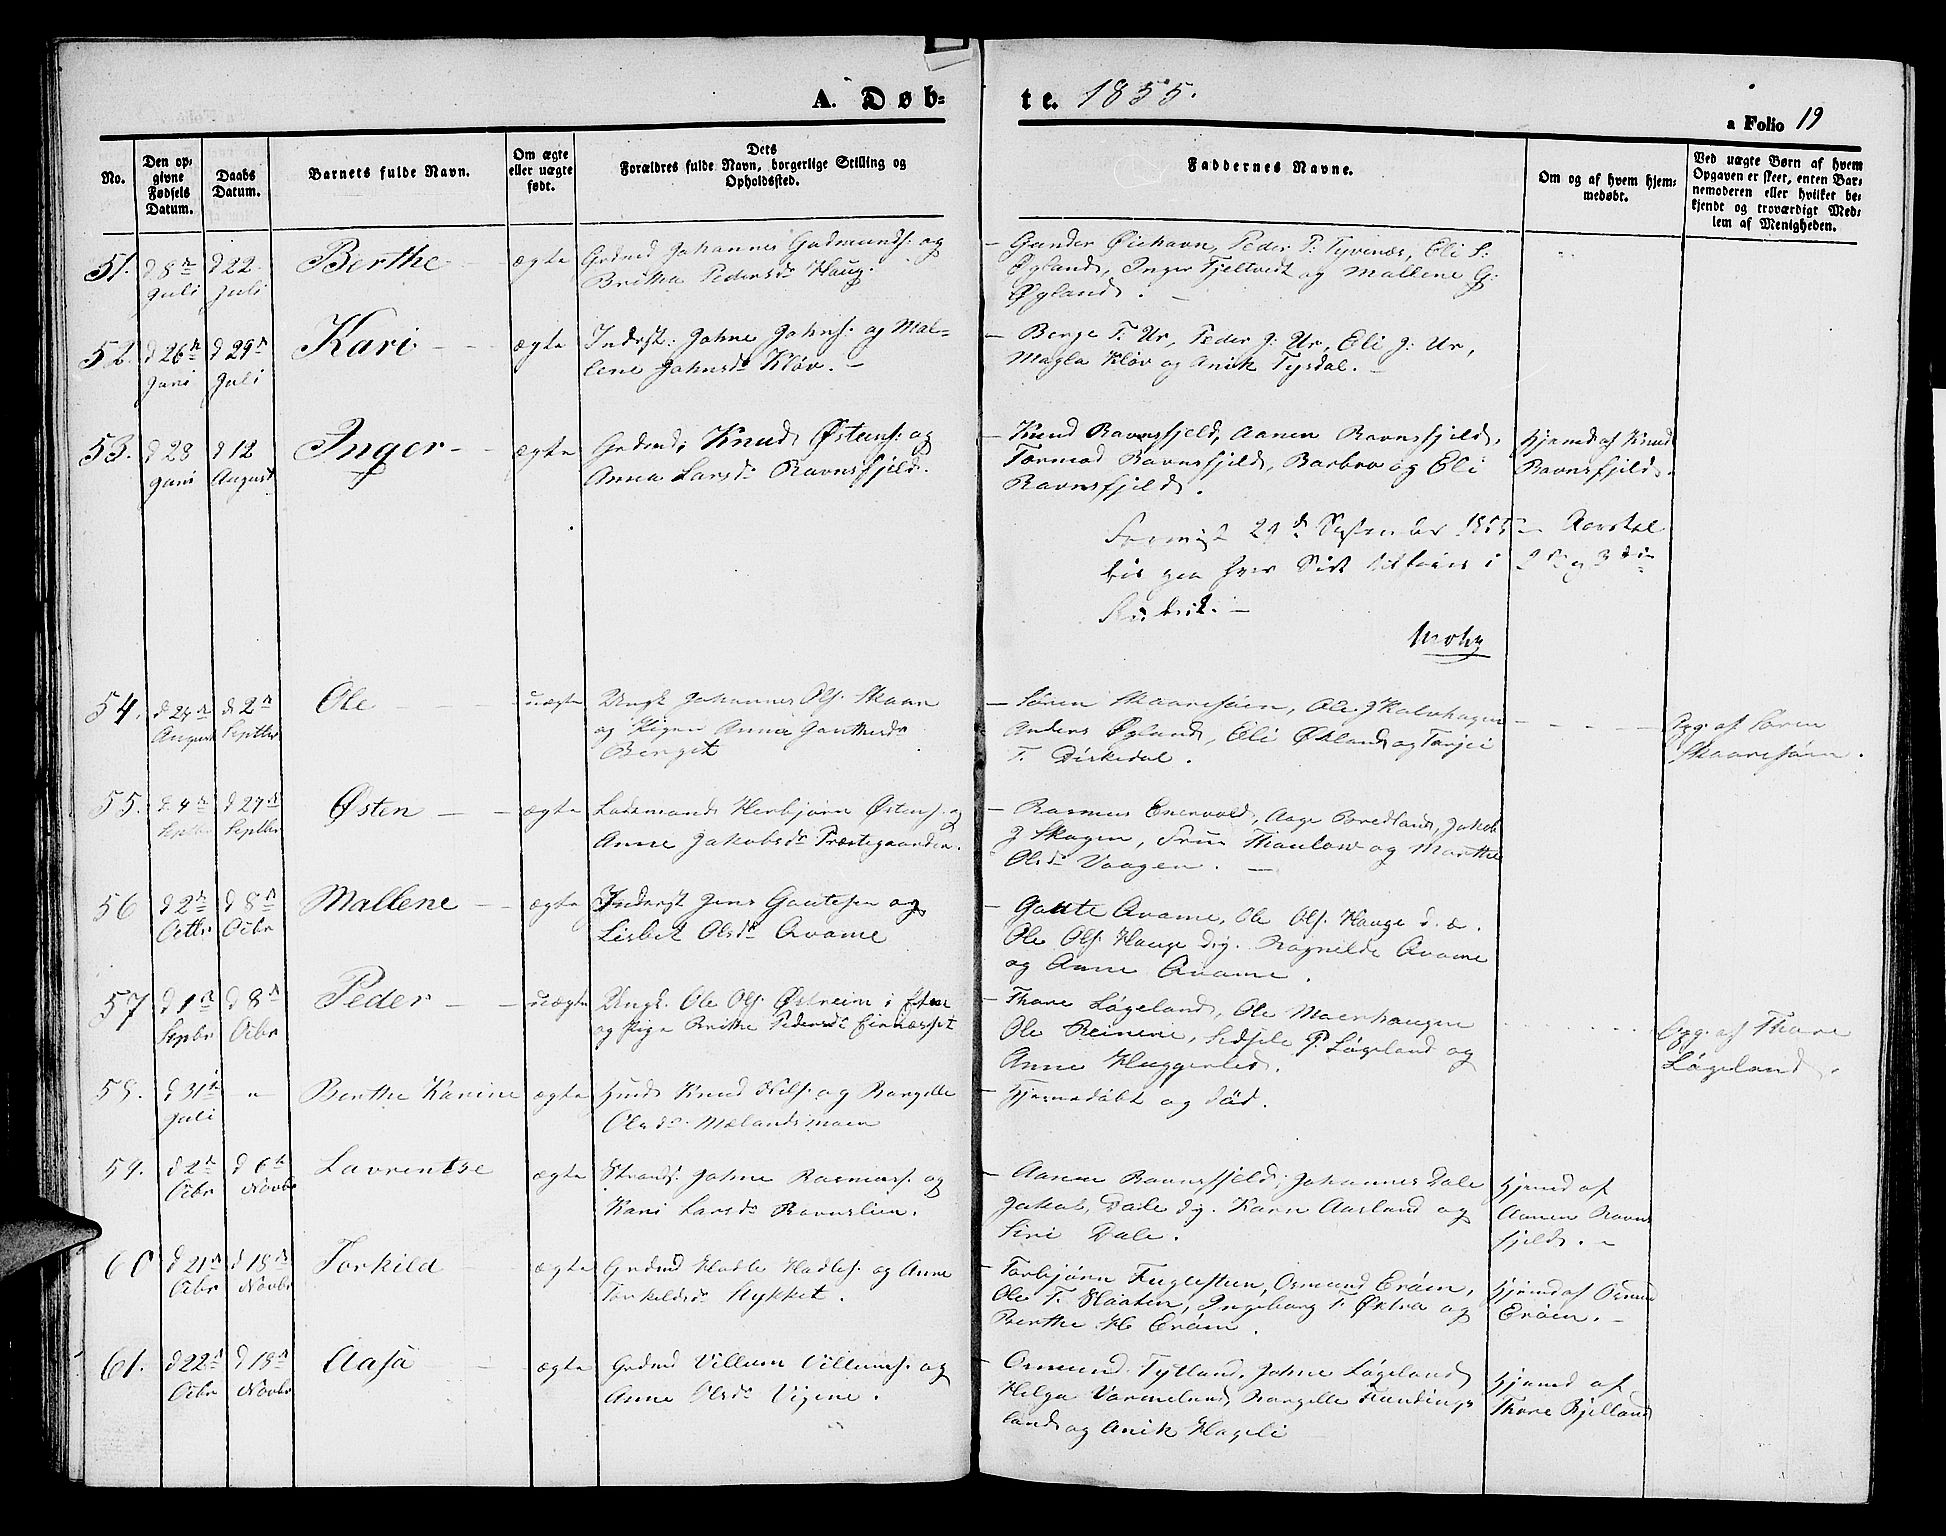 A. Døb-
te. 1855.
a Folio 19
No.
Den op-
givne
Fødsels
Datum.
Daabs
Datum.
Barnets fulde Navn.
Om ægte
eller uægte
født.
Dets
Forældres fulde Navn, borgerlige Stilling og
Opholdssted.
Faddernes Navne.
Om og af hvem hjem-
medøbt.
Ved uægte Børn af hvem
Opgaven er skeet, enten Bar-
nemoderen eller hvilket be-
kjendt og troværdigt Med-
lem af Menigheden.
51. d 8n Juli d 22 Juli Berthe ægte
Grdmd Johannes Gudmunds: og
Britha Pedersdr Haug.
Gunder Øiehavn, Peder P. Tyvenæs, Eli S:
Øgland, Inger Fjeltvedt og Mallene G:
Øgland.
52. d 26n Juni d 29n Juli Kari ægte
Inderst: Johne Johns: og Mal-
lene Johnsdr Kløv.
Berge T. Ur, Peder J: Ur, Eli J: Ur,
Magla Kløv og Anik Tysdal.
53. d 28 Juni d 12 August Inger ægte
Grdmd: Knud Østens: og
Anna Larsdr Ravnsfjeld.
Knud Ravnsfjeld, Aanen Ravnsfjeld,
Tormod Ravnsfjeld, Barbro og Eli
Ravnsfjeld.
Hjemd af Knud
Ravnsfjeld.
29d September 1855
i 2d og 3die
Rubrik.
54. d 24n August d 2n Septbr Ole uægte
Ungk Johannes Ols: Skaar
og Pigen Anna Gauthesdr
Berget
Søren Skaaresøien, Ole J Kalvhagen
Anders Øgland, Eli Økland og Torjei
T. Dirkedal.
Opg. af Søren
Skaaresøien.
55. d 4n Septbr d 24n Septbr Østen ægte
Losmand Herbjørn Østens: og
Anne Jakobsdr Præstegaarden.
Rasmus Enervold, Aage Bredland, Jakob
J Skogen, Frue Thaulow og Marthe
Olsdr Vaagen.
56 d 2n Octbr d 8n Octbr Mallene ægte
Inderst Jens Gautesen og
Lisbet Olsdr Avame
Gaute Avame, Ole Ols: Hauge d. æ.
Ole Ols: Hauge d.y. Ragnilde Avame
og Anne Avame.
57 d 1n Sepbr d 8n Octbr Peder uægte
Ungk. Ole Ols: Østreim i Etne
og Pige Brithe Pedersdr Einersset
Thore Løgeland, Ole Moenhaugen
Ole Reinene, Sidsele P. Løgeland og
Anne Huggerled.
Opg. af Thore
Løgeland.
58. d 31te Juli " Berthe Karine ægte
Husm Knud Nils: og Rangelle
Olsdr Mælandsmoen
Hjemmedøbt og død.
59. d 2n Octbr d 6te Novbr Lavrentse ægte
Strands: Johne Rasmus: og
Kari Larsdr Ravnslien.
Aanen Ravnsfjeld, Johannes Dale
Jakob, Dale d.y. Karn Aasland og
Siri Dale.
Hjemd af
Aanen Ravns
fjeld.
60 d 21n Octbr d 18n Novbr Torkild ægte
Grdmd Hadle Hadles: og Anne
Torkildsdr Stykket.
Torbjørn Fuglestien, Osmund Erøen,
Ole T. Slaaten, Ingeborg T. Østra og
Berthe H Erøen.
Hjemd af Osmun
Erøen.
61. d 22n Octbr d 18n Novbr Aasa ægte
Grdmd Villum Villums: og
Anne Olsdr Vigene.
Osmund Tytland, Johne Løgeland,
Helga Varmeland, Rangelle Fundings
land og Anik Hageli
Hjemd af
Thore Kjelland